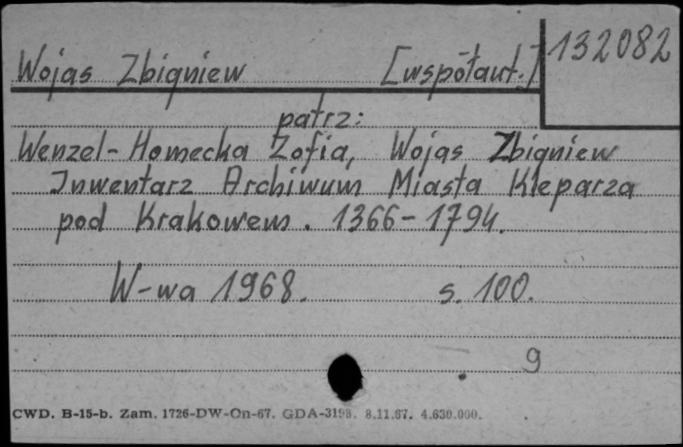 132082
Wojas Zbigniew [współaut.]
patrz:
Wenzel-Homecka Zofia, Wojas Zbigniew
Inwentarz Archiwum Miasta Kleparza
pod Krakowem. 1366-1794.
W-wa 1968. s. 100.
9
CWD. B-15-b. Zam. 1726-DW-On-67. GDA-3198. 8.11.67. 4.630.000.